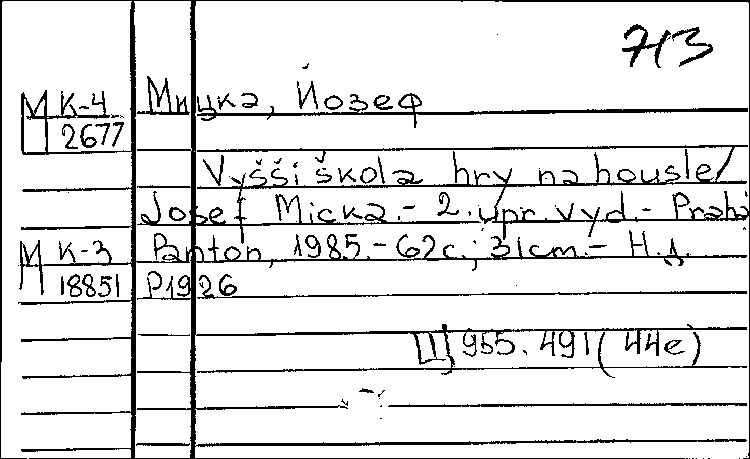 713
МК-4 Мицка, Йозеф
Ц 2677
Vyšší škola hry na housle/
Josef Micka.- 2. upr. vyd.- Praha
МК-3 Panton, 1985.- 62с.; 31cm.- Н.д.
18851 P1926
Ц 955.491(44e)